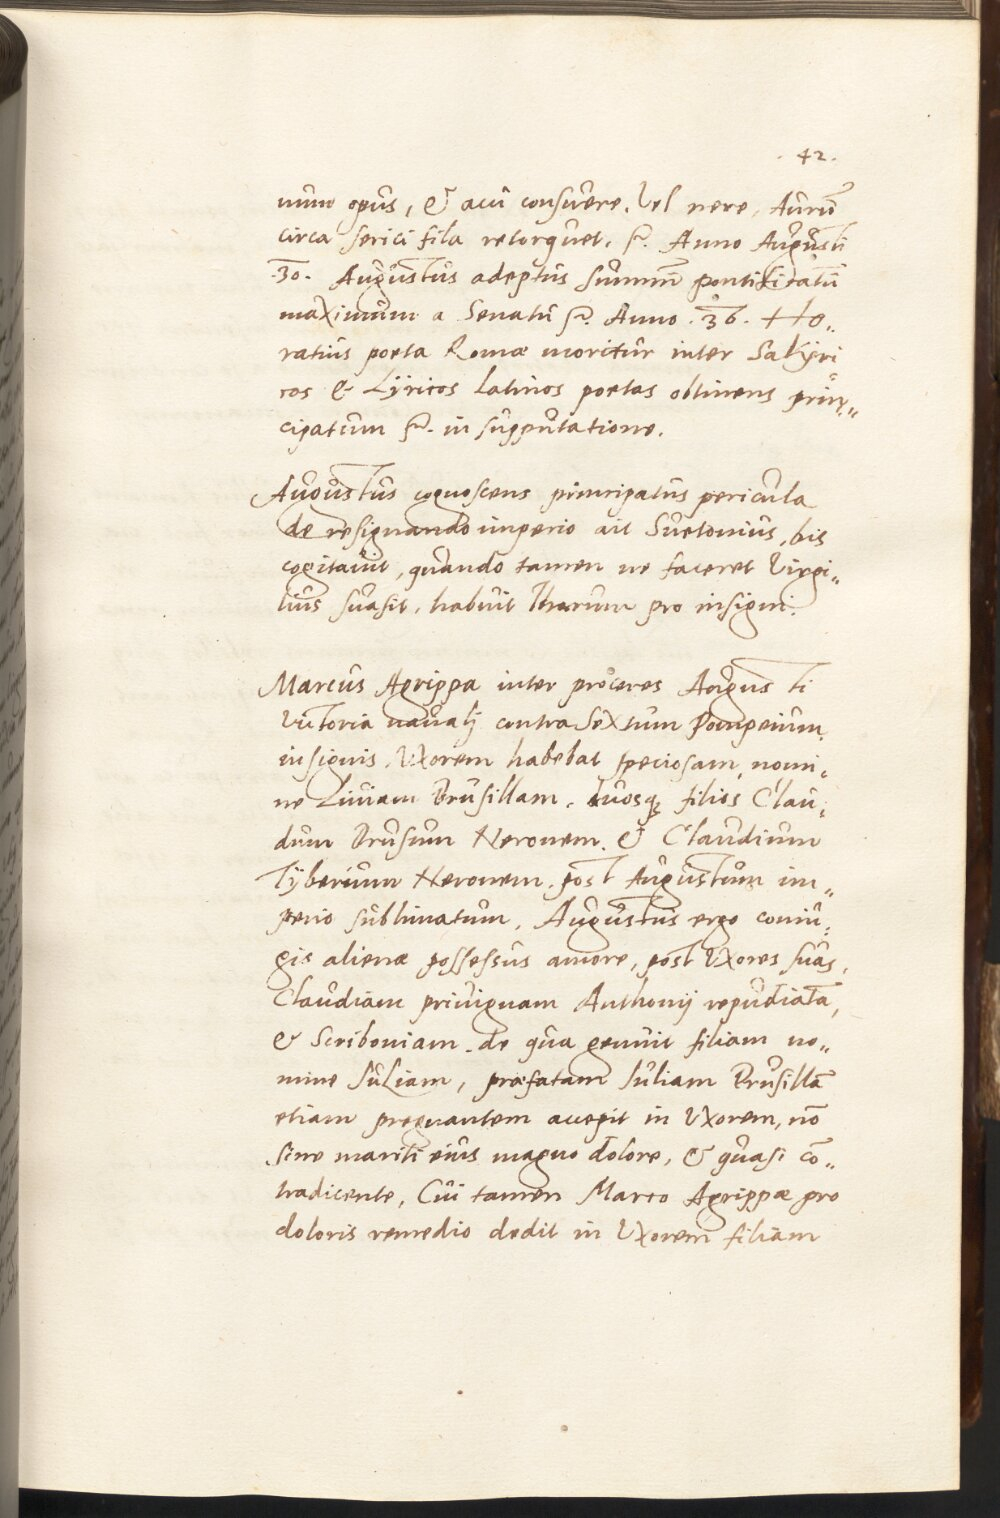 42.
unum opus, & acu consuere. Vel nere, Aurū
circa serici fila retorquet. Anno Augusti
.30. Augustus adeptus summū pontificatū
maximum a Senatu Anno .36. Ho„
ratius poeta Romæ moritur inter Satyri
cos & Lyricos latinos poetas obtinens prin„
cipatum in supputatione.
Augustus cognoscens principatus pericula
de resignando imperio ait Suetonius, bis
cogitavit, quando tamen ne faceret Virgi„
lius suasit, habuit Thaurum pro insigni.
Marcus Agrippa inter proceres Augusti
victoria navalj contra Sextum Pompeium
insignis, Vxorem habebat speciosam, nomi„
ne Liviam Drusillam. duosqꝫ filios Clau„
dium Drusum Neronem. & Claudium
Tyberium Neronem, post Augustum im„
perio sublimatum, Augustus ergo coniu„
gis alienæ possessus amore, post Vxores suas,
Claudiam privignam Anthonij repudiata,
& Scriboniam. de qua genuit filiam no„
mine Juliam, præfatam Juliam Drusillā
etiam pregnantem accepit in Vxorem, nō
sine mariti eius magno dolore, & quasi cō„
tradicente, Cui tamen Marco Agrippæ pro
doloris remedio dedit in Vxorem filiam